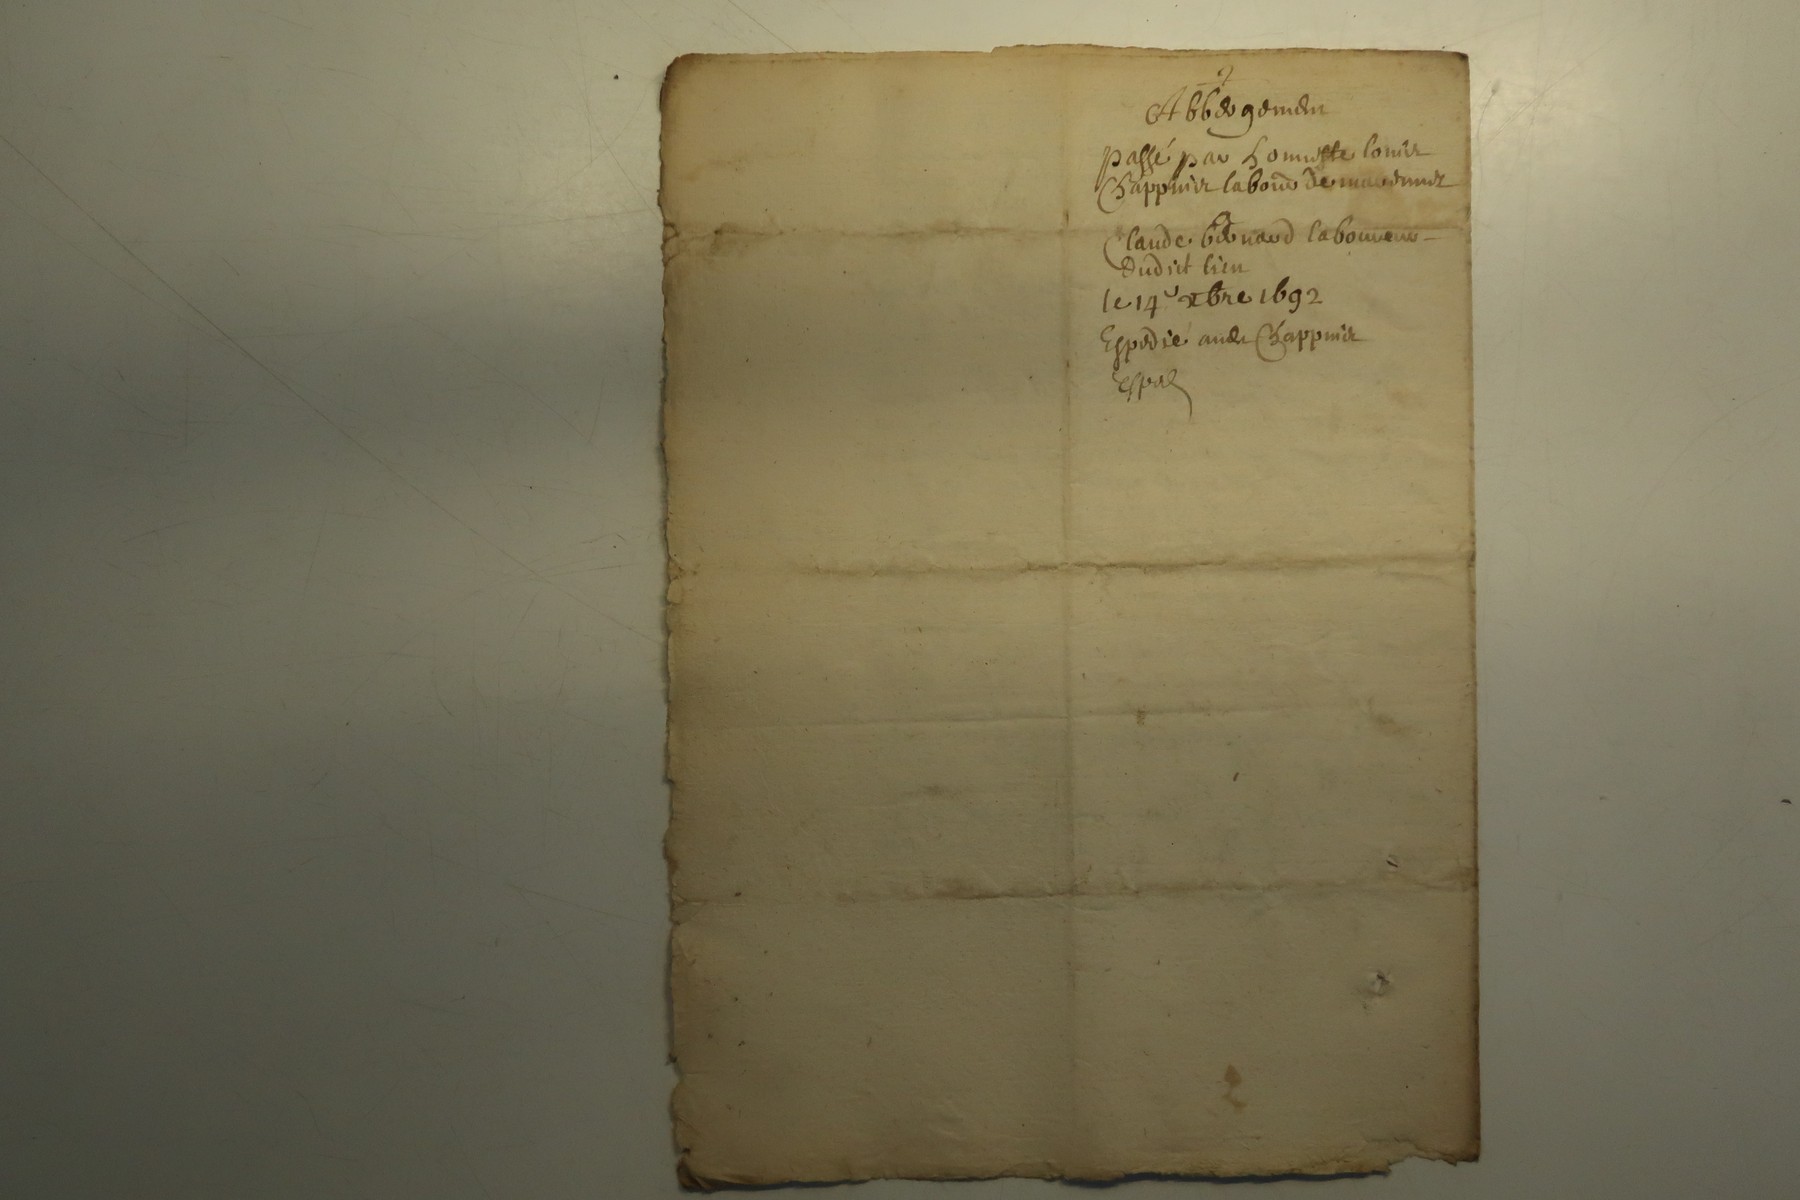 2
Abbergemen
passé par honneste louis
Chappuis labour de
Claude bernard laboureur
dudict lieu
le 14e xbre 1692
Expedié audit Chappuis